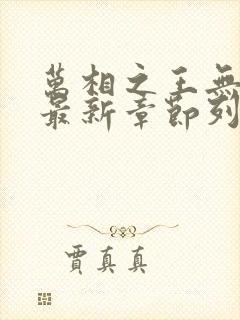 萬相之王無
最新章節列
賈真真